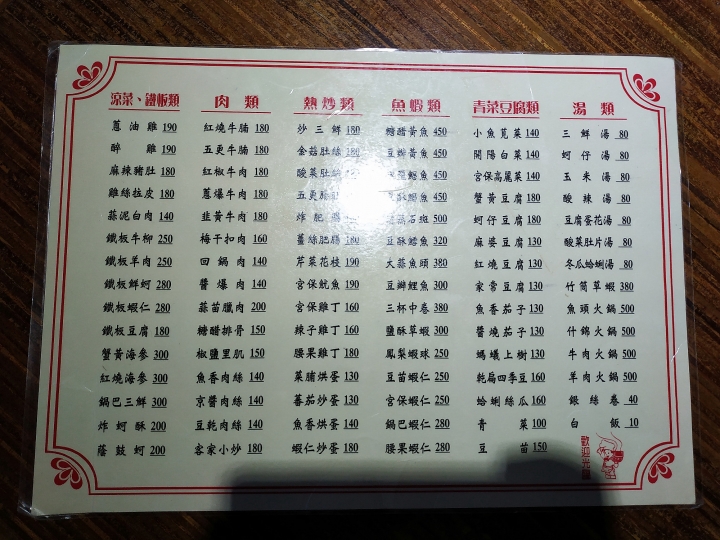 涼菜、鐵板類
蔥油雞 190
醉雞 190
麻辣豬肚 180
雞絲拉皮 180
蒜泥白肉 140
鐵板牛柳 250
鐵板羊肉 250
鐵板鮮蚵 280
鐵板蝦仁 280
鐵板豆腐 180
蟹黃海參 300
紅燒海參 300
鍋巴三鮮 300
炸蚵酥 200
蔭鼓蚵 200
肉類
紅燒牛腩 180
五更牛腩 180
紅椒牛肉 180
蔥爆牛肉 180
韭黃牛肉 180
梅干扣肉 160
回鍋肉 140
醬爆肉 140
蒜苗臘肉 200
糖醋排骨 150
椒鹽里肌 150
魚香肉絲 140
京醬肉絲 140
豆乾肉絲 140
客家小炒 180
熱炒類
炒三鮮 180
金菇肚絲 180
酸菜肚
五更
炸肥
薑絲肥腸 180
芹菜花枝 190
宮保魷魚 190
宮保雞丁 160
辣子雞丁 160
腰果雞丁 180
菜脯烘蛋 130
蕃茄炒蛋 130
魚香烘蛋 140
蝦仁炒蛋 180
魚蝦類
糖醋黃魚 450
豆瓣黃魚 450
鱈魚 450
鱈魚 450
石斑 500
豆酥鱈魚 320
大蒜魚頭 380
豆瓣鯉魚 300
三杯中卷 380
鹽酥草蝦 300
鳳梨蝦球 250
豆苗蝦仁 250
宮保蝦仁 250
鍋巴蝦仁 280
腰果蝦仁 280
青菜豆腐類
小魚莧菜 140
開陽白菜 140
宮保高麗菜 140
蟹黃豆腐 180
蚵仔豆腐 180
麻婆豆腐 130
紅燒豆腐 130
家常豆腐 130
魚香茄子 130
醬燒茄子 130
螞蟻上樹 130
乾扁四季豆 160
蛤蜊絲瓜 160
青菜 100
豆苗 150
湯類
三鮮湯 80
蚵仔湯 80
玉米湯 80
酸辣湯 80
豆腐蛋花湯 80
酸菜肚片湯 80
冬瓜蛤蜊湯 80
竹筒草蝦 380
魚頭火鍋 500
什錦火鍋 500
牛肉火鍋 500
羊肉火鍋 500
銀絲卷 40
白飯 10
歡迎光臨